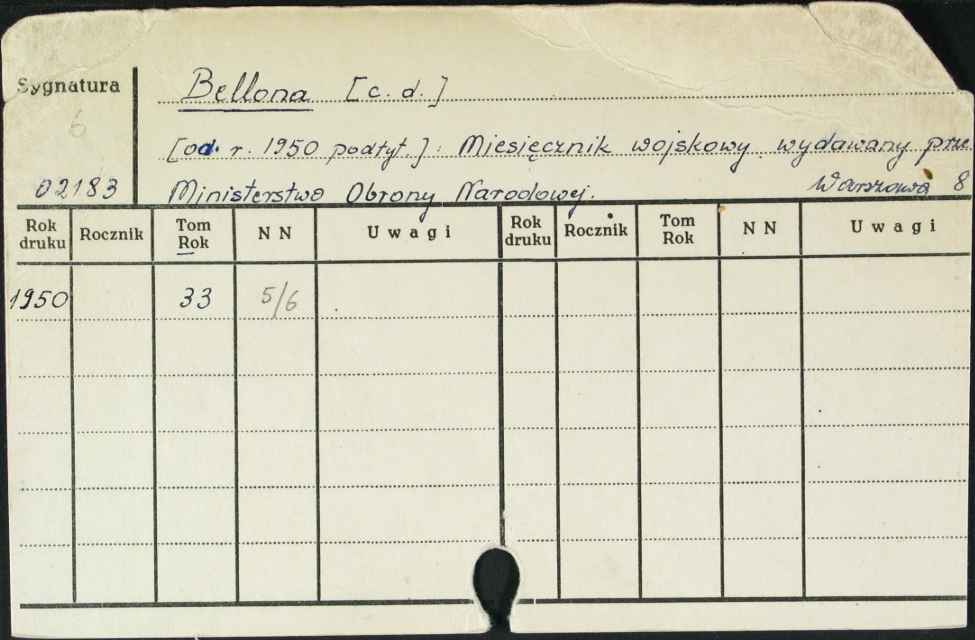 Sygnatura Bellona [c. d.]
6
[od r. 1950 podtyt.] : Miesięcznik wojskowy wydawany prze.
02183 Ministerstwo Obrony Narodowej. Warszawa 8
Rok druku Rocznik Tom Rok N N Uwagi Rok druku Rocznik Tom Rok N N Uwagi
1950 33 5/6